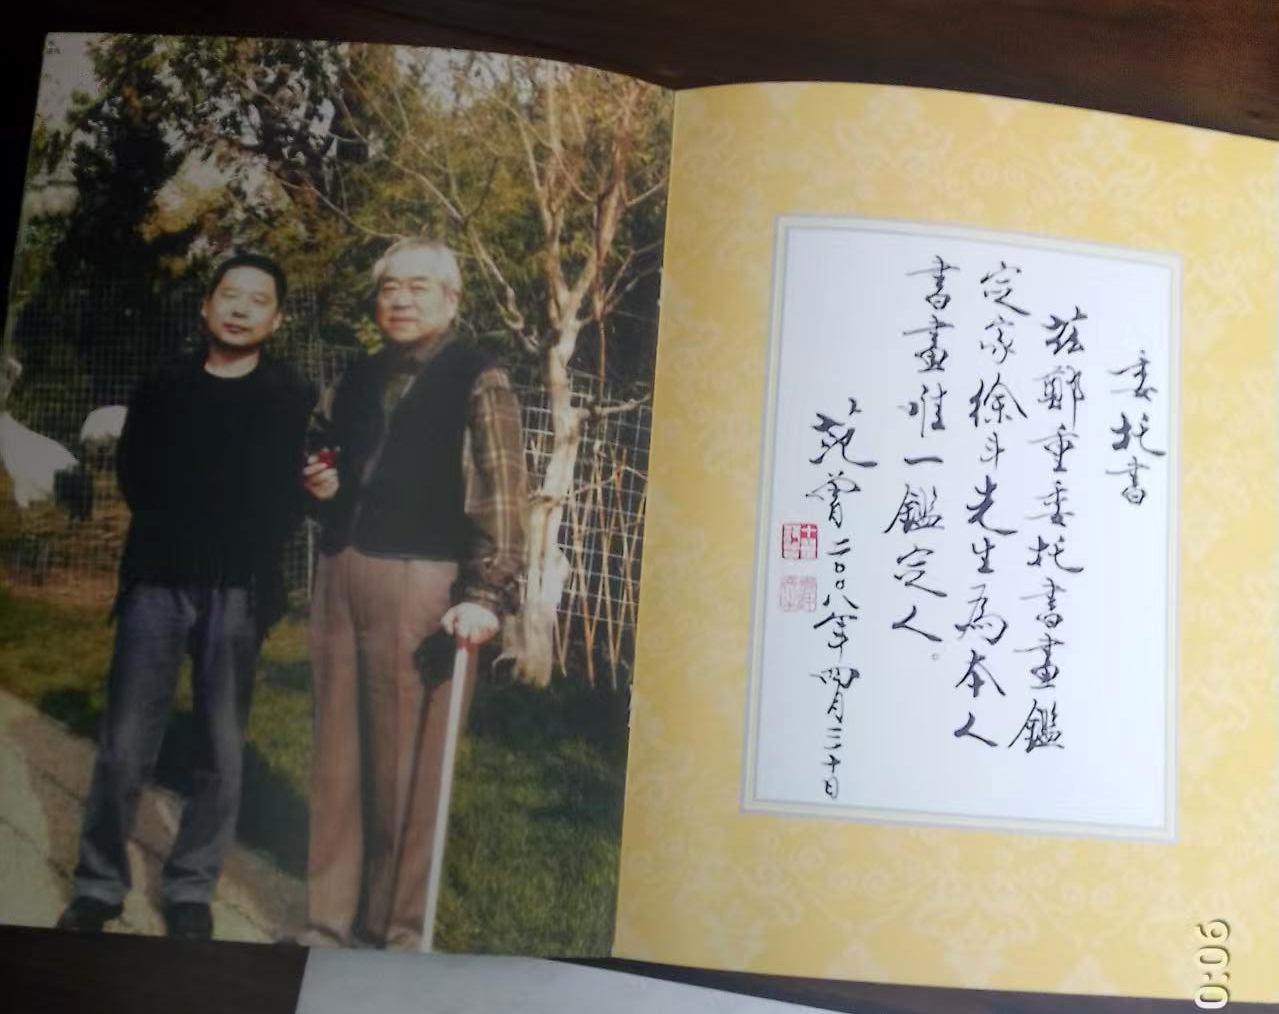 委托书
茲鄭重委托書畫鑑
定家徐斗先生為本人
書畫唯一鑑定人。
范曾二〇〇八年四月二十日
0:06